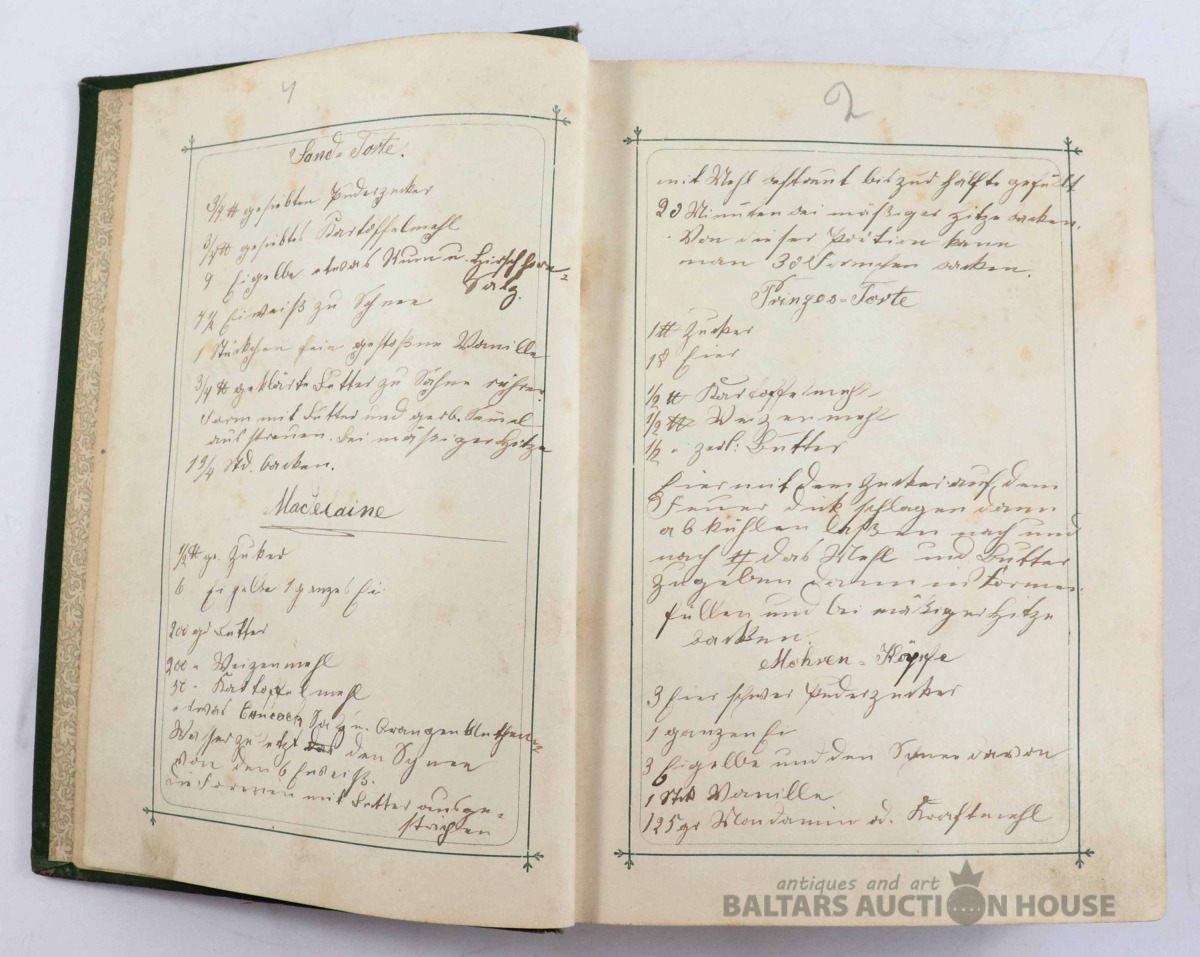 1
Sand=Torte.
3/4 ℔ gesiebten Puderzucker
3/4 ℔ gesiebtes Kartoffelmehl
9 Eigelbe etwas Rum u. Hirschhorn=
Salz.
4 1/2 Eiweiß zu Schnee
1 Stückchen fein gestoßne Vanille
3/4 ℔ geklärte Butter zu Sahne rühren
Form mit Butter und gerb. Semmel
ausstreuen. bei mäßiger Hitze
1 3/4 Std. backen.
Madelaine
1/2 ℔ gr. Zucker
6 Eigelbe 1 ganzes Ei
200 gr Butter
200 " Weizenmehl
50 " Kartoffelmehl
etwas Salz u. Orangenblüthen=
Wasser zuletzt den Schnee
von den 6 Eiweiß.
Die Formen mit Butter ausge=
strichen
2
mit Mehl bestreut bis zur Hälfte gefüllt
20 Minuten bei mäßiger Hitze backen.
Von dieser Portion kann
man 30 Formchen backen.
Prinzes=Torte
1 ℔ Zucker
18 Eier
1/2 ℔ Kartoffelmehl
1/2 ℔ Weizenmehl
1/2 " zerl: Butter
Eier mit dem Zucker auf dem
Feuer dick schlagen dann
abkühlen laßen nach und
nach das Mehl und Butter
zugeben dann in Formen
füllen und bei mäßiger Hitze
backen.
Mohren=Köpfe
3 Eier schwer Puderzucker
1 ganzen Ei
3 Eigelbe und den Schnee davon
1 Stck Vanille
125 gr Mondamin od. Kraftmehl
antiques and art
BALTARS AUCTION HOUSE